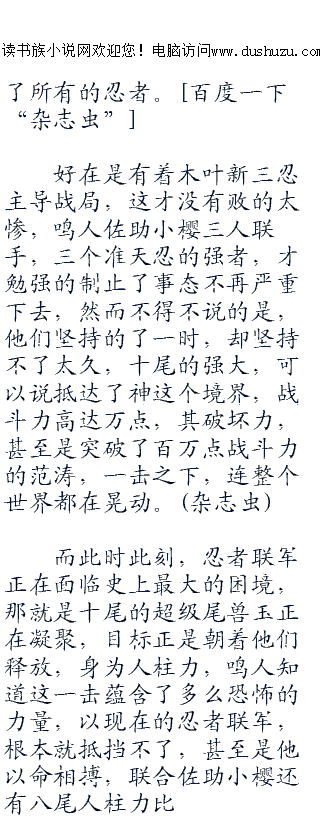 读书族小说网欢迎您！电脑访问www.dushuzu.com
了所有的忍者。[百度一下
“杂志虫”]
好在是有着木叶新三忍
主导战局，这才没有败的太
惨，鸣人佐助小樱三人联
手，三个准天忍的强者，才
勉强的制止了事态不再严重
下去，然而不得不说的是，
他们坚持的了一时，却坚持
不了太久，十尾的强大，可
以说抵达了神这个境界，战
斗力高达万点，其破坏力，
甚至是突破了百万点战斗力
的范涛，一击之下，连整个
世界都在晃动。(杂志虫)
而此时此刻，忍者联军
正在面临史上最大的困境，
那就是十尾的超级尾兽玉正
在凝聚，目标正是朝着他们
释放，身为人柱力，鸣人知
道这一击蕴含了多么恐怖的
力量，以现在的忍者联军，
根本就抵挡不了，甚至是他
以命相搏，联合佐助小樱还
有八尾人柱力比